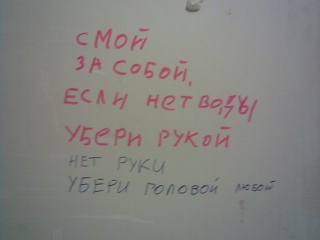 СМОЙ
ЗА СОБОЙ,
ЕСЛИ НЕТ ВОДЫ
УБЕРИ РУКОЙ
НЕТ РУКИ
УБЕРИ ГОЛОВОЙ ЛЮБОЙ